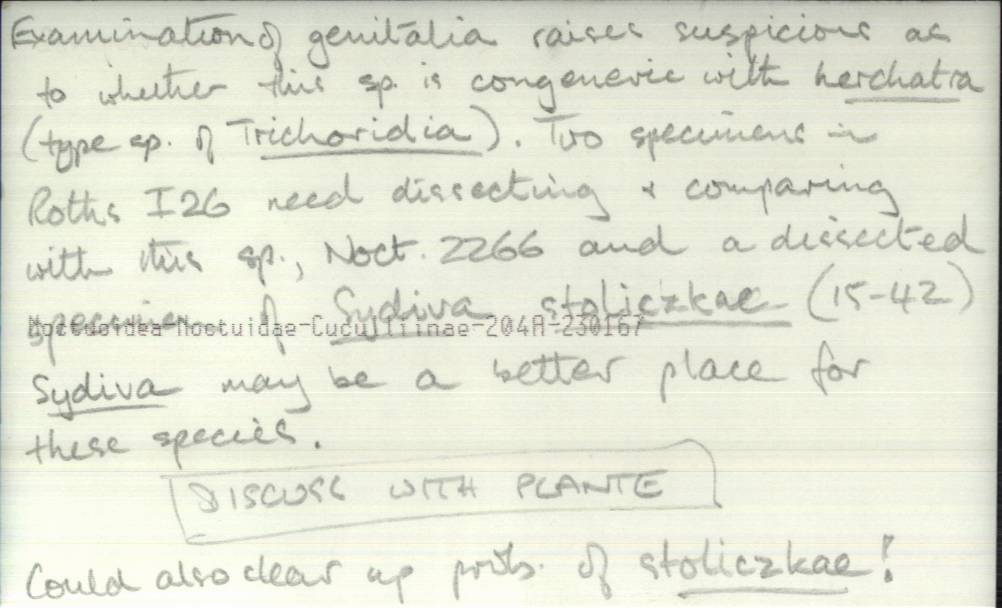 Examination of genitalia raises suspicions as
to whether this sp. is congeneric with herchatra
(type sp. of Trichoridia). Two specimens in
Roths I26 need dissecting & comparing
with this sp., Noct. 2266 and a dissected
specimen of Sydiva stoliczkae (15-42)
Noctuoidea-Noctuidae-Cuculliinae-204A-230167
Sydiva may be a better place for
these species.
DISCUSS WITH PLANTE
Could also clear up prob. of stoliczkae!